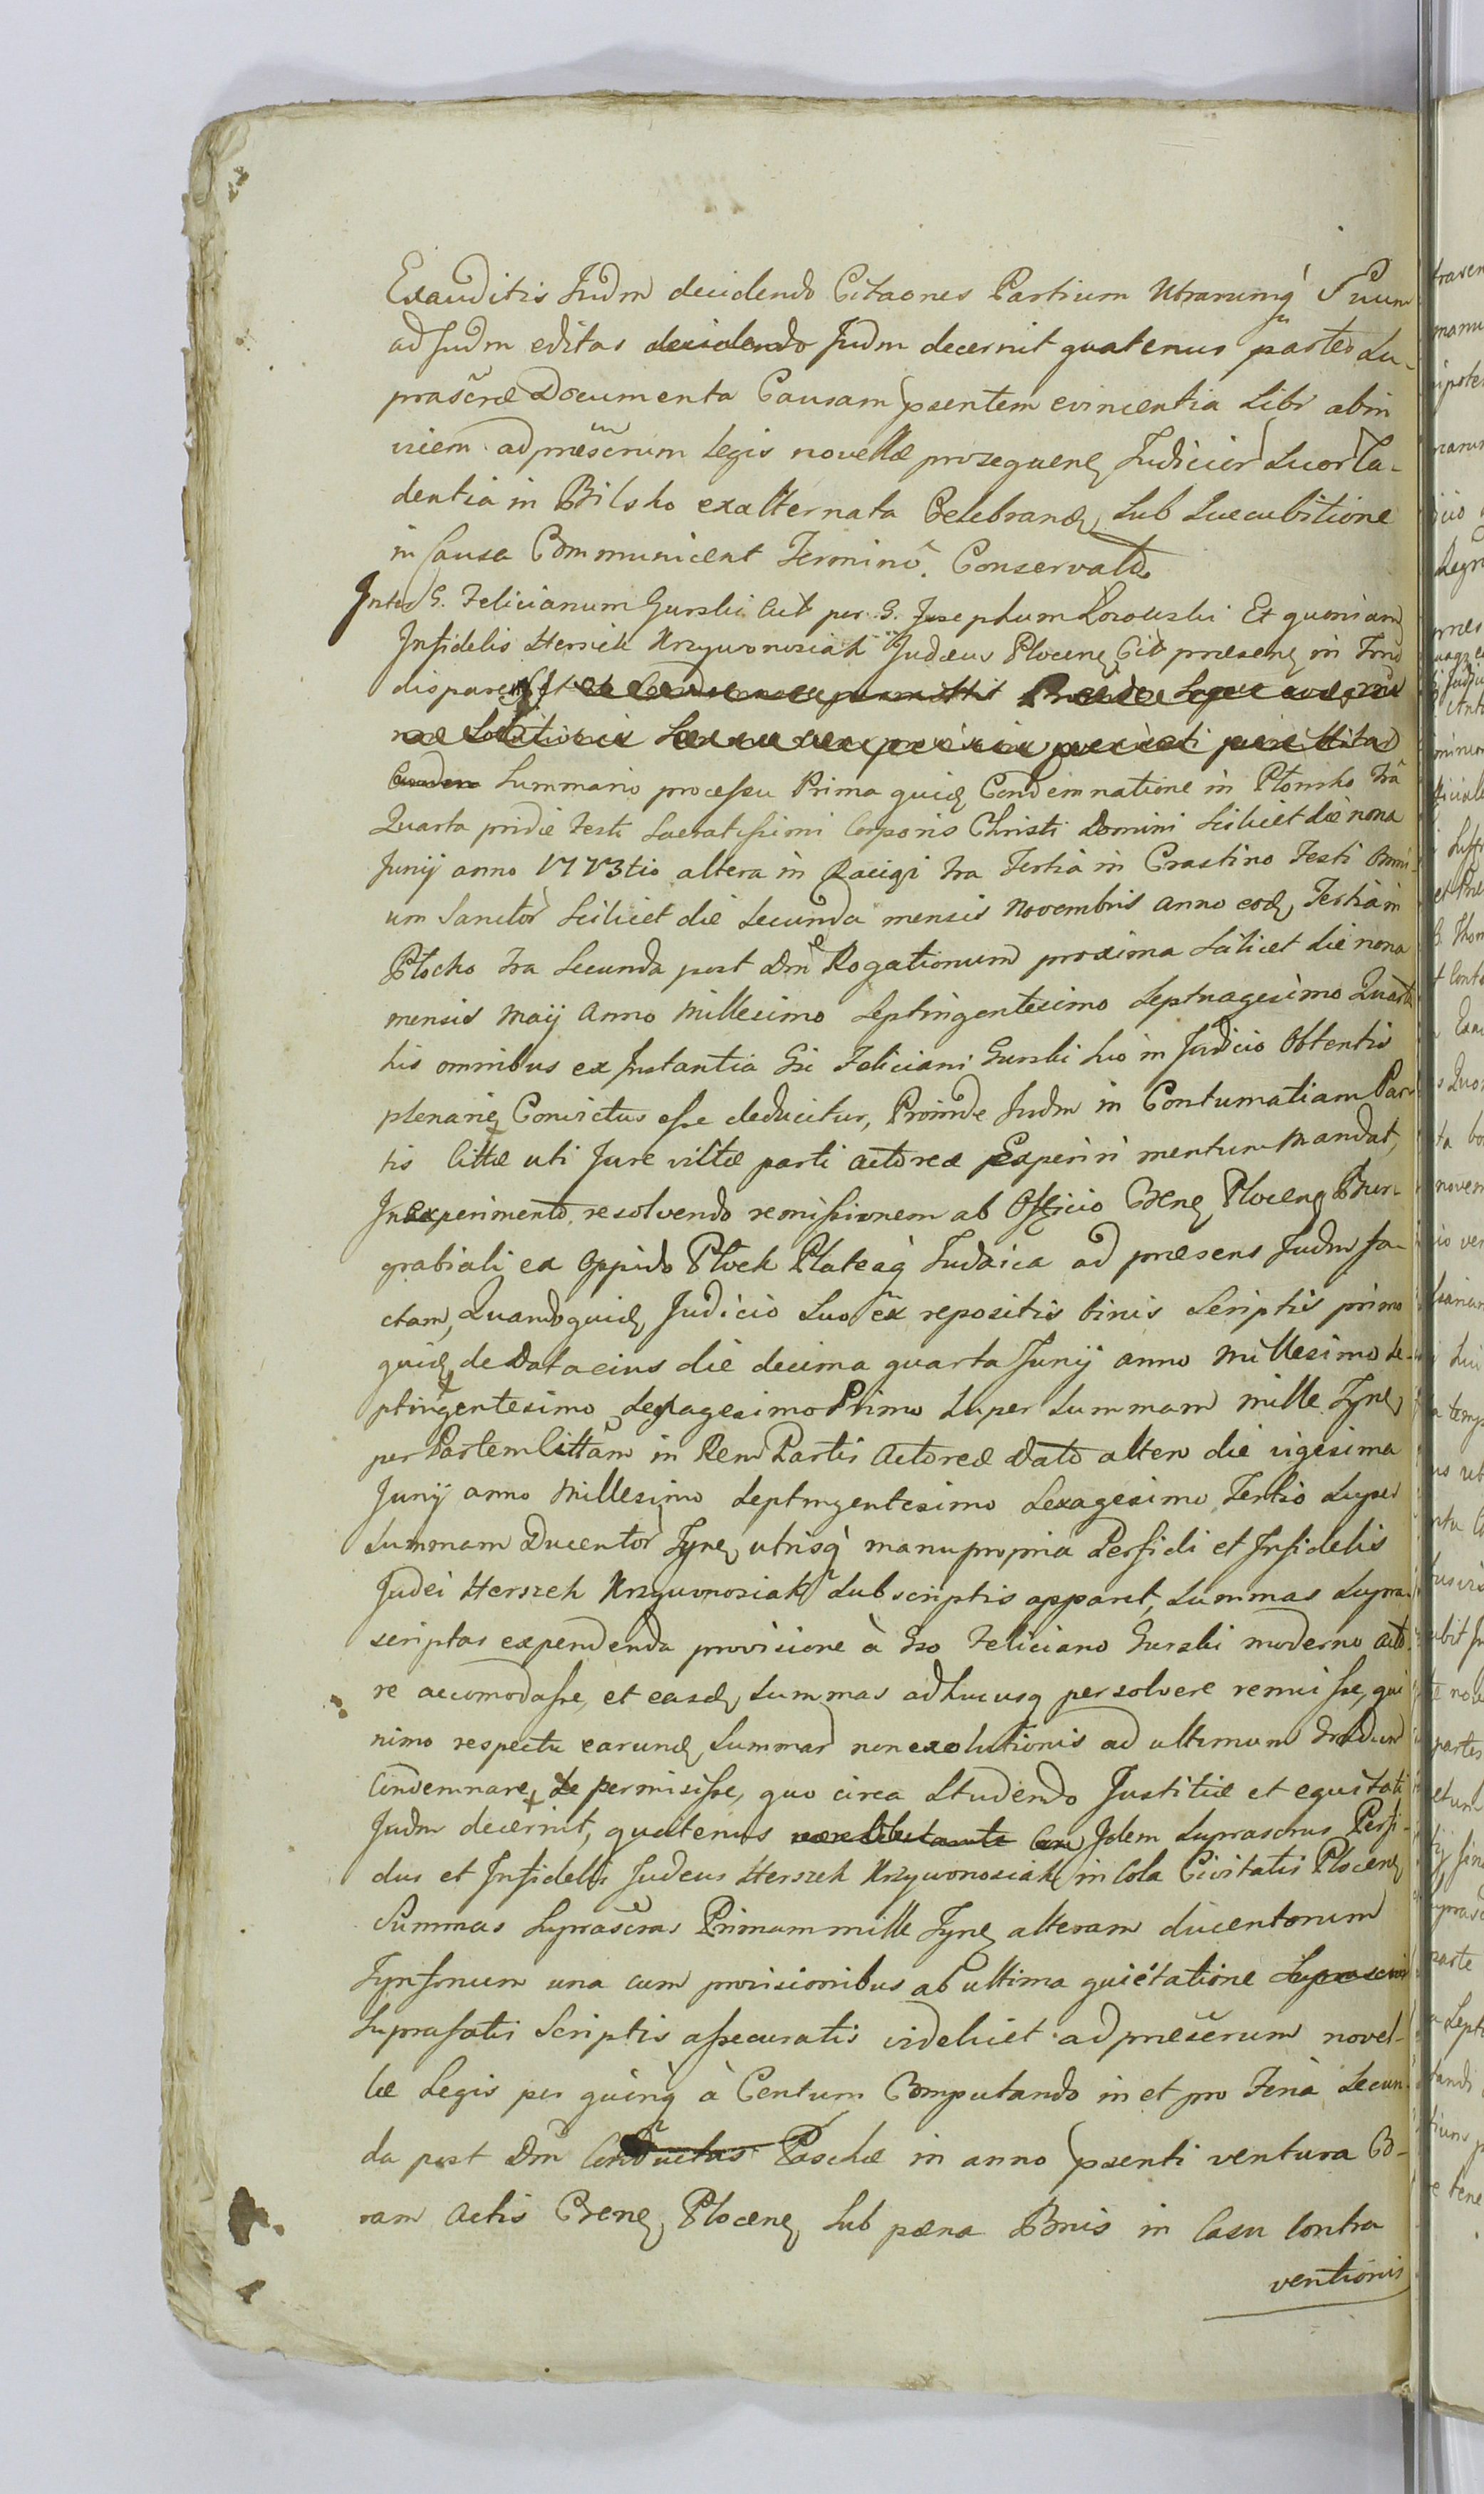 Exauditis Judm decidendo Citaones Partium Utrarumq̀ Suum
ad Judm editas decidendo Judm decernit quatenus partes Su-
prascræ Documenta Causam psentem evincentia Sibi abin
vicem ad præscrum Legis novellæ prosequenę Judicior Suor Ca-
dentia in Bilsko exalternata Celebrandę, Sub Succubitione
in Causa Communicent Terminõ. Conservato
Inter G. Felicianum Gurski Act per G. Josephum Et quoniam
Infidelis Herszek Krzywonosiak Judæus Plocenę Citt præsenę in Trno
disparenę
Summario processu Prima quidę Condemnatione in Płonsko Fra
Quarta pridie Festi Sacratissimi Corporis Christi Domini Scilicet die nona
Junij anno 1773tio altera in Raciąż Fra Tertia in Crastino Festi Omni-
um Sanctor Scilicet die Secunda mensis Novembris anno eodę, Tertia in
Plocko Fra Secunda post Dm Rogationum proxima Scilicet die nona
mensis Maij Anno Millesimo Septingentesimo Septuagesimo Quarto
his omnibus ex Instantia Gsi Feliciani Gurski hio in Judicio Obtentis
plenarię Convictus esse deducitur, Proinde Judm in Contumatiam Par-
tis Cittæ uti Jure victæ parti actoreæ Experiri mentum Mandat,
In experimento resolvendo remissionem ab Officio Crenę Plocenę Bur-
grabiali ex Oppido Płock Plateaq̀ Judaica ad præsens Judm fa-
ctam, Quandoquidę Judicio Suo ex repositis binis Scriptis primo
quidę de Data eius die decima quarta Junij anno Millesimo Se-
ptingentesimo Sexagesimo Primo Super Summam mille Tynę
per Partem Cittãm in Rem Partis Actoreæ Dato altero die vigesima
Junij anno Millesimo Septingentesimo Sexagesimo Tertio Super
Summam Ducentor Tynę, utrisq̀ manu propria Perfidi et Infidelis
Judei Herszek Krzywonosiak Subscriptis apparet, Summas Supra-
scriptas expendenda provisione à Gso Feliciano Gurski moderno acto-
re accomodasse, et easdę Summas adhucusq persolvere renuisse, qui
nimo respectu earundę Summar non exolutionis ad ultimum
Condemnarę Se permisisse, quo circa Studendo Justitiæ et equitati
Judm decernit, quatenus Idem Suprascrus Perfi-
dus et Infidelis Judeus Herszek Krzywonosiak incola Civitatis Plocenę
Summas Suprascras Primam mille Tynę alteram ducentorum
Tynfonum una cum provisionibus ab ultima quietatione Suprascris
Suprafatis Scriptis assecuratis videlicet ad præscrum novel-
læ Legis per quinq à Centum Computando in et pro Feria Secun-
da post Dm Conductus Paschæ in anno psenti ventura Co-
ram Actis Crenę, Plocenę Sub pæna Bnis in Casu Contra
ventionis